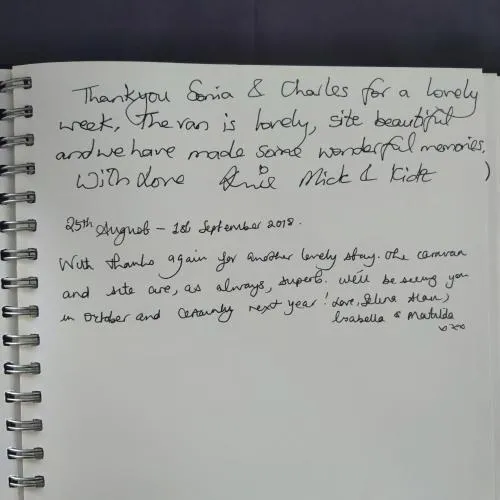 Thankyou Sonia & Charles for a lovely
week, The van is lovely, site beautiful
and we have made some wonderful memories.
With Love Mick & Kidz
25th August - 1st September 2018.
With thanks again for another lovely stay. The caravan
and site are, as always, superb. We'll be seeing you
in October and certainly next year! Love,
Isabella & Matilda
xxx